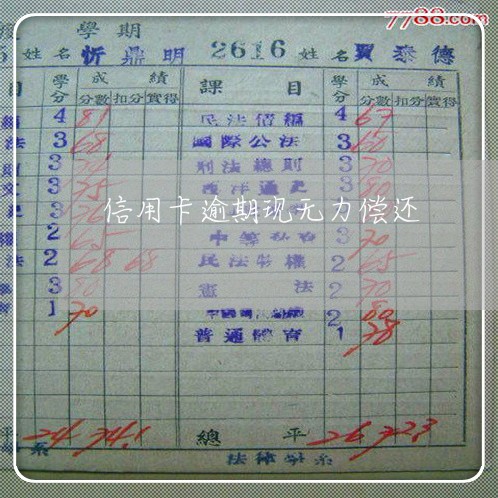 7788.com
學期
姓名 忻鼎明 2616 姓名 賈泰德
目 學分 成績 課目 學分 成績
分數 扣分 實得 分數 扣分 實得
4 81 民法債編 4 67
法 3 68 國際公法 3 60
3 刑法總則 3 70
3 75 西洋通史 3 80
信用卡逾期现无力偿还
2 65 3 70
法 2 68 68 民法物權 2 65
3 80 憲法 2 70
育 1 70 2 80
普通體育 1 78
平 24 74.1 總平 26 72.3
系 法律學系